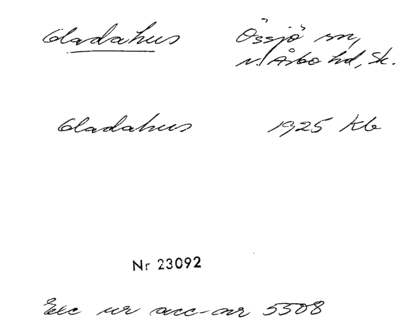 Gladahus Össjö sn,
N. Åsbo hd, Sk.
Gladahus 1925 Kb
Nr 23092
Exc ur acc-nr 5508